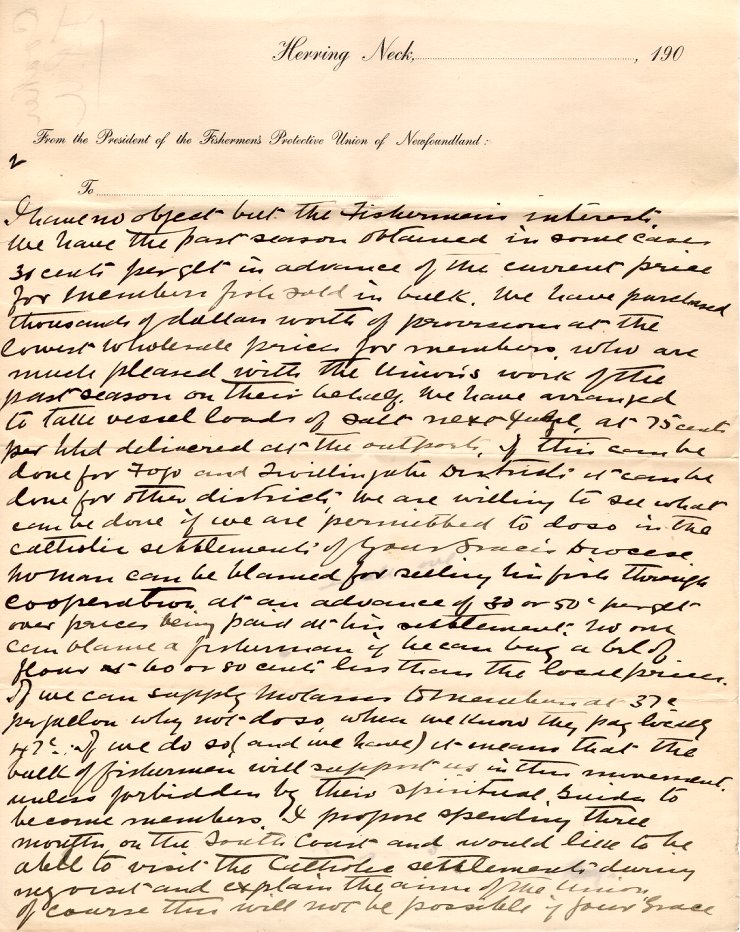 Herring Neck, , 190
From the President of the Fishermen's Protective Union of Newfoundland:
2
To
I have no object but the Fishermen's interests
We have the past season obtained in some cases
30 cents per qtl in advance of the current price
for members fish sold in bulk. We have purchased
thousands of dollars worth of provisions at the
lowest wholesale prices for members, who are
much pleased with the Union's work of the
past season on their behalf. We have arranged
to take vessel loads of salt next at 75 cents
per hhd delivered at the outports, if this can be
done for Fogo and Twillingate Districts it can be
done for other districts, We are willing to see what
can be done if we are permitted to do so in the
catholic settlements of Your Grace's Diocese
no man can be blamed for selling his fish through
cooperation at an advance of 30 or 50c per qtl
over prices being paid at his settlement. no one
can blame a fisherman if he can buy a brl of
flour at 60 or 80 cents less than the local prices.
If we can supply molasses to members at 37c
per gallon why not do so when we know they pay locally
47c. If we do so (and we have) it means that the
bulk of fishermen will support us in this movement.
unless forbidden by their spiritual Guides to
become members. I propose spending three
months on the South Coast and would like to be
able to visit the Catholic settlements during
my visit and explain the aims of the Union
of course this will not be possible if your Grace